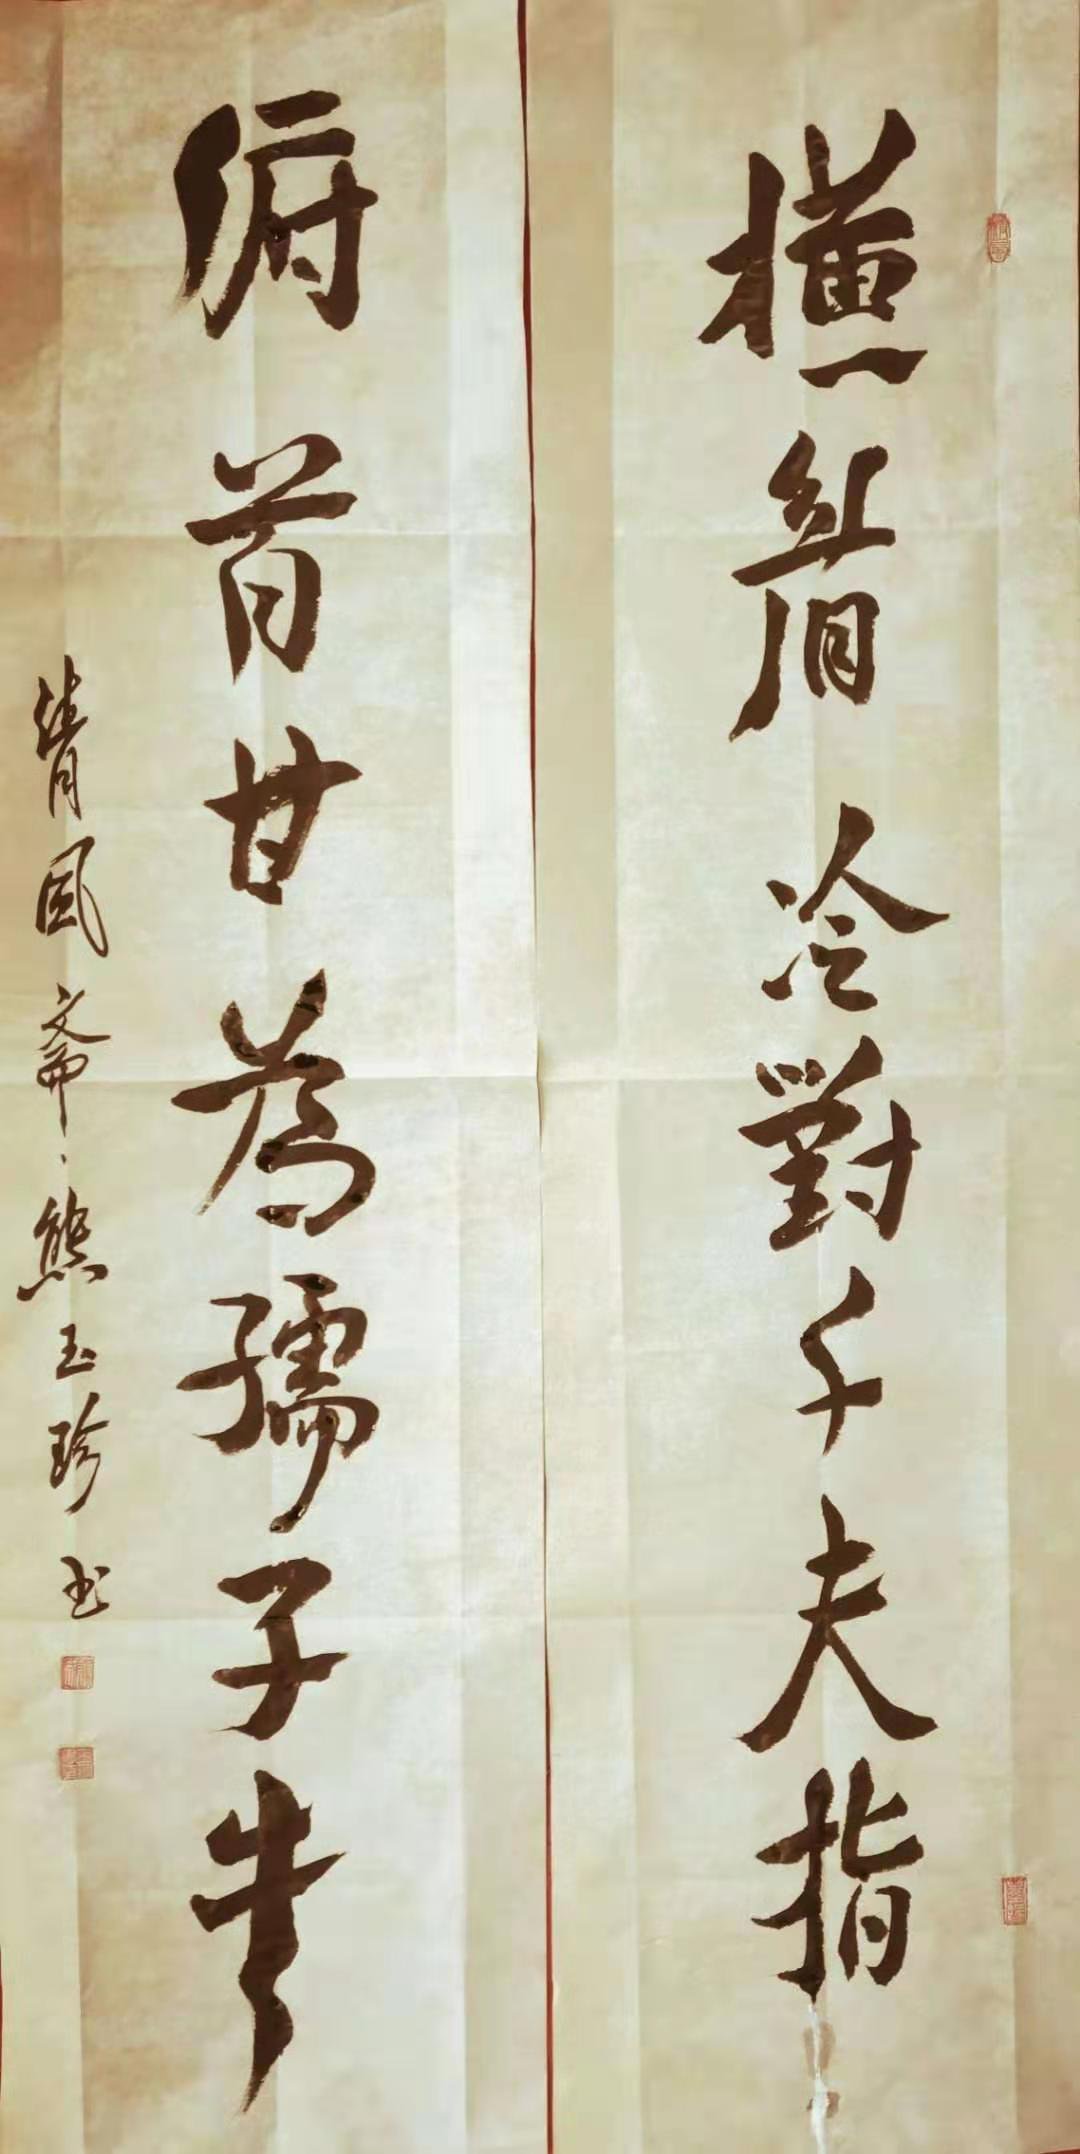 橫眉冷對千夫指
俯首甘為孺子牛
清風斋熊玉珍书